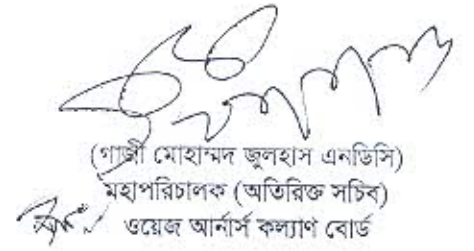 (গাজী মোহাম্মদ জুলহাস এনডিসি)
মহাপরিচালক (অতিরিক্ত সচিব)
ওয়েজ আর্নার্স কল্যাণ বোর্ড